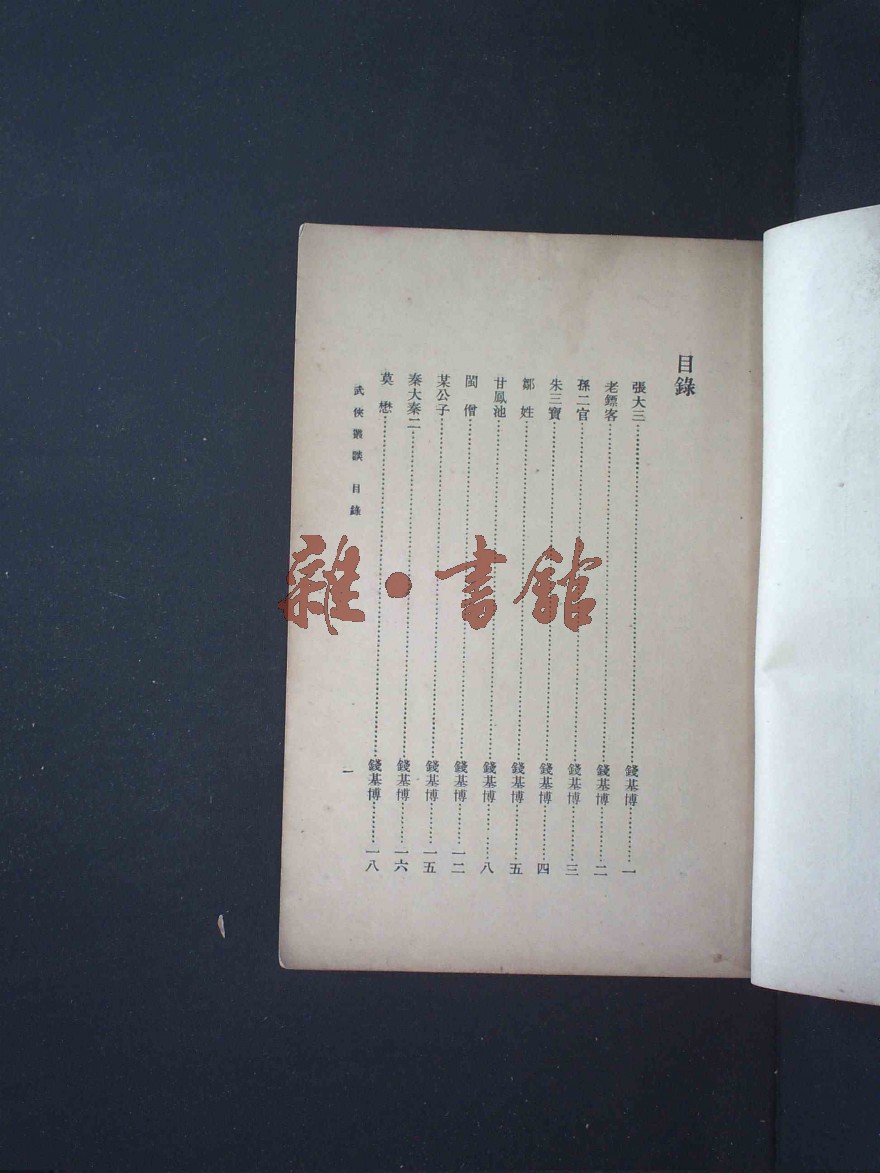 目錄
張大三……錢基博……一
老鏢客……錢基博……二
孫二官……錢基博……三
朱三寶……錢基博……四
鄒姓……錢基博……五
甘鳳池……錢基博……八
閩僧……錢基博……一二
某公子……錢基博……一五
秦大秦二……錢基博……一六
莫懋……錢基博……一八
武俠叢談 目錄
一
雜·書館